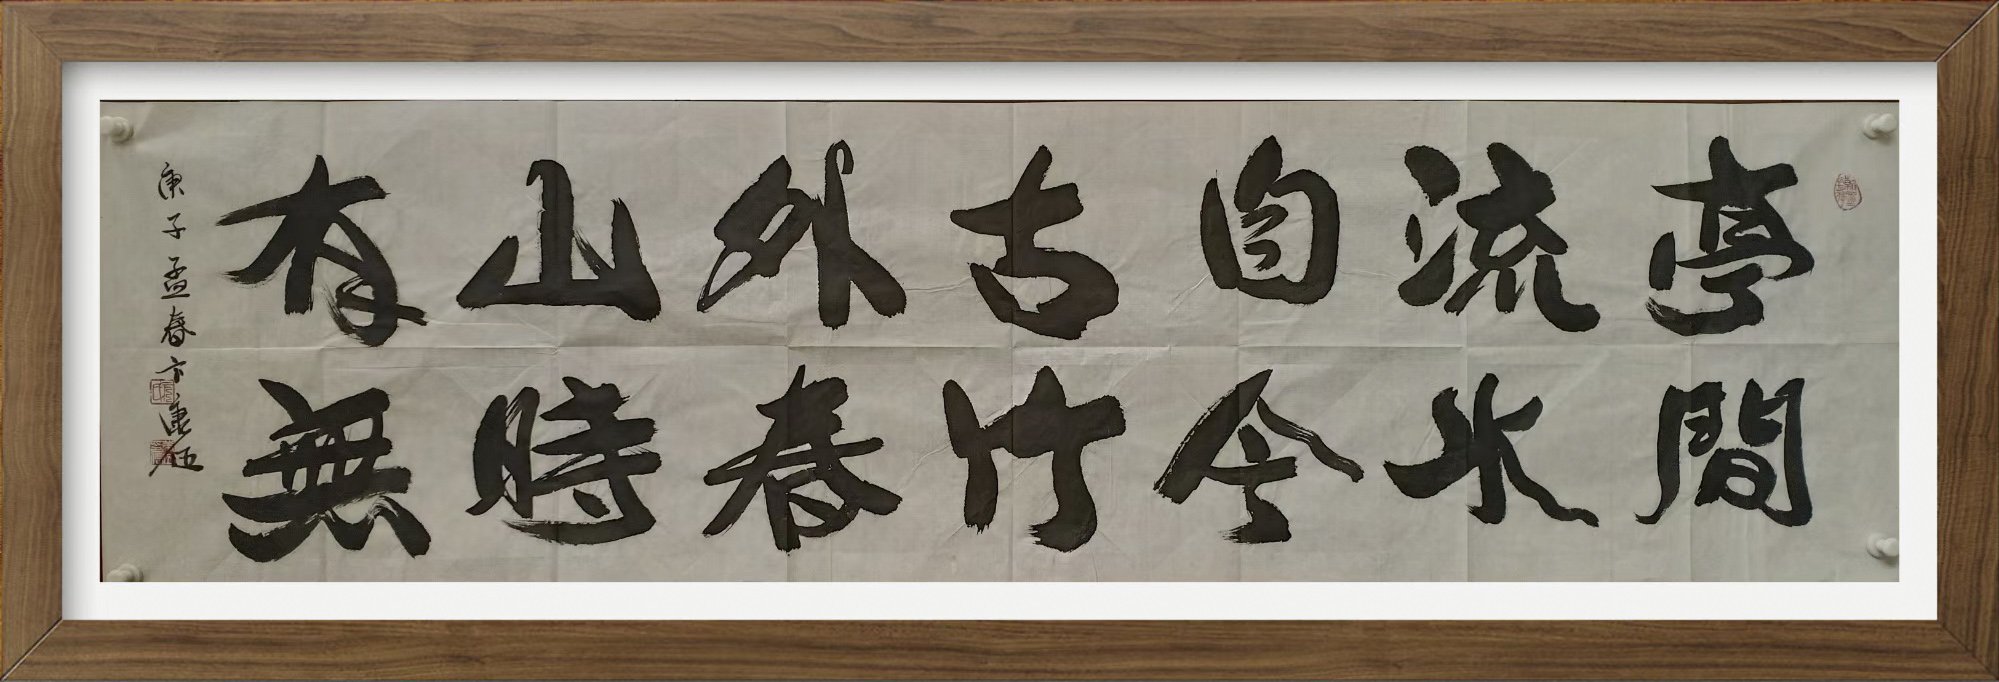 亭間
流水
自今
古竹
外春
山時
有無
庚子孟春卞